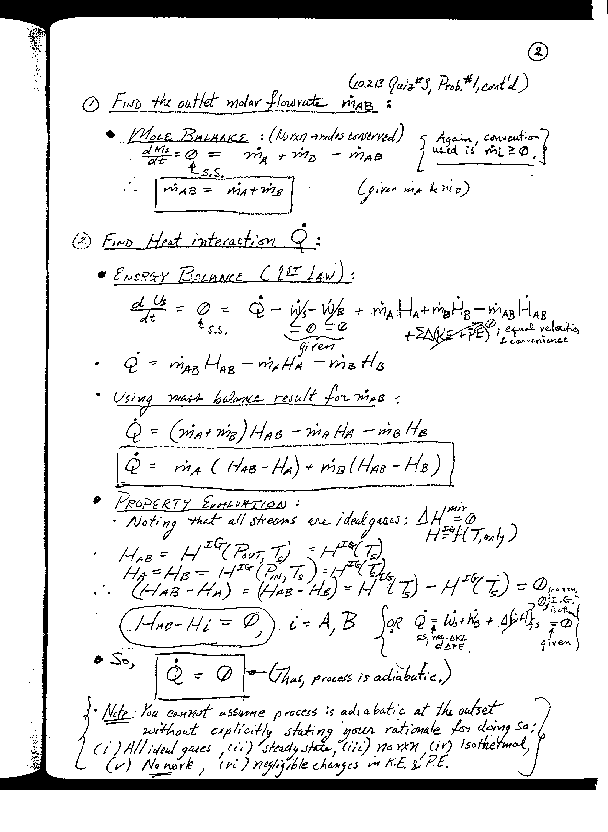 2
(10.213 Quiz #3, Prob. #1, cont'd)
① FIND the outlet molar flowrate ṁAB :
• MOLE BALANCE : (no rxn → moles conserved)
dMs/dt = 0 = ṁA + ṁB − ṁAB
S.S.
{ Again, convention
used is ṁi ≥ 0. }
∴ ṁAB = ṁA + ṁB (given ṁA & ṁB)
② FIND Heat interaction Q̇ :
• ENERGY BALANCE (1ST LAW) :
dUs/dt = 0 = Q̇ − Ẇs − ẆB + ṁA HA + ṁB HB − ṁAB HAB
S.S. = 0 = 0 + ΣΔ(KE + PE) 0 ; equal velocities
given & convenience
• Q̇ = ṁAB HAB − ṁA HA − ṁB HB
• Using mass balance result for ṁAB :
Q̇ = (ṁA + ṁB) HAB − ṁA HA − ṁB HB
Q̇ = ṁA (HAB − HA) + ṁB (HAB − HB)
• PROPERTY EVALUATION :
· Noting that all streams are ideal gases : ΔH^mix = 0
H^IG = f(T, only)
· HAB = H^IG (Pout, Ts) = H^IG (Ts)
HA = HB = H^IG (Pin, Ts) = H^IG (Ts)
∴ (HAB − HA) = (HAB − HB) = H^IG (Ts) − H^IG (Ts) = 0
HAB − Hi = 0, i = A, B
{ OR Q̇ = Ẇs + ẆB + = 0
given }
• So, Q̇ = 0 ← (Thus, process is adiabatic.)
{ · Note: You cannot assume process is adiabatic at the outset
without explicitly stating your rationale for doing so:
(i) All ideal gases, (ii) steady state, (iii) no rxn (iv) Isothermal,
(v) No work, (vi) negligible changes in K.E. & P.E. }